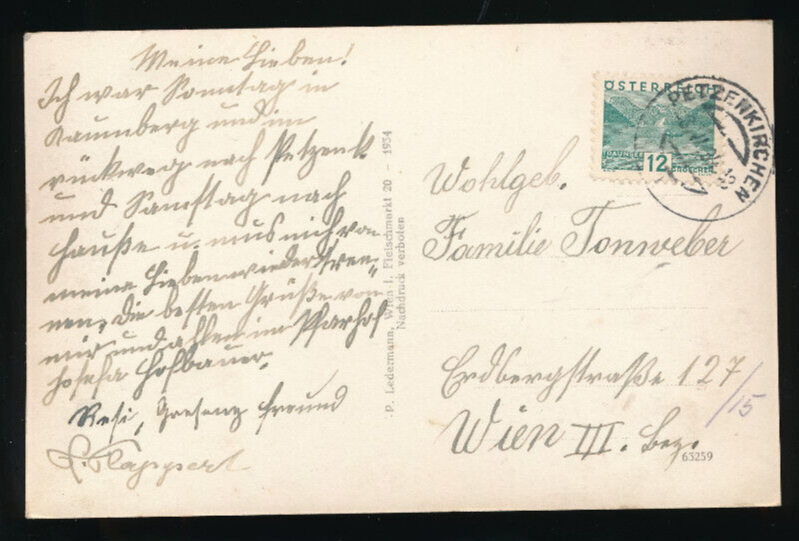 Meine Lieben!
Ich war Sonntag in
Kaumberg und im
rückweg nach Petzenk
und Samstag nach
Hauße u. mus mich von
meine Lieben wieder tren„
nen, die besten Grüße von
mir und allen im Pfarhof
Josefa Hofbauer.
Resi, freund
P. Ledermann, Wien I, Fleischmarkt 20 - 1934
Nachdruck verboten
ÖSTERREICH
TRAUNSEE
12 GROSCHEN
PETZENKIRCHEN
Wohlgeb.
Familie Tonweber
Erdbergstraße 127/15
Wien III. Bez.
63259